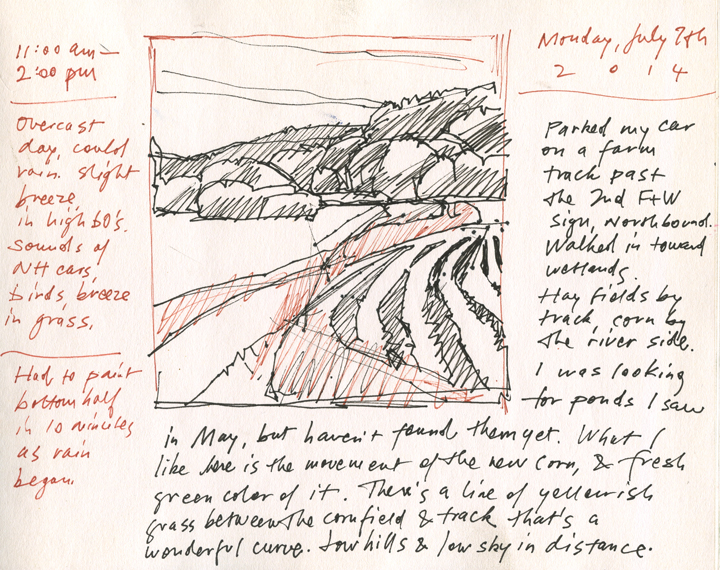 11:00 am –
2:00 pm
Overcast
day, could
rain. Slight
breeze
in high 80's.
Sounds of
NH cars,
birds, breeze
in grass.
Had to paint
bottom half
in 10 minutes
as rain
began.
Monday, July 7th
2 0 1 4
Parked my car
on a farm
track past
the 2nd F+W
Sign, Northbound.
Walked in toward
wetlands.
Hay fields by
track, corn by
the river side.
I was looking
for ponds I saw
in May, but haven't found them yet. What I
like here is the movement of the new corn, & fresh
green color of it. There's a line of yellowish
grass between the cornfield & track that's a
wonderful curve. Low hills & low sky in distance.